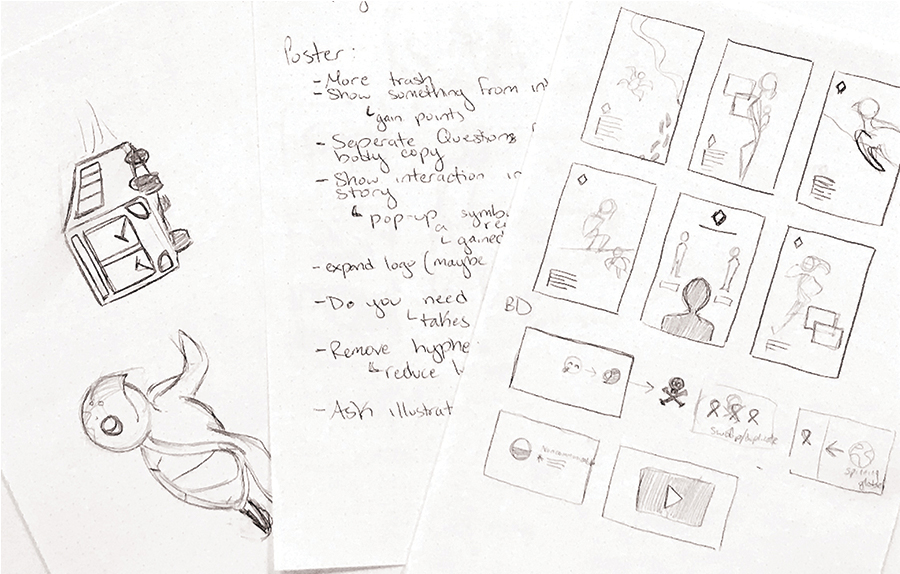 Poster:
- More trash
- Show something from in
gain points
- Seperate Questions
body copy
- Show interaction in
story
pop-up symb
a re
gained
- expand logo (maybe
- Do you need
takes
- Remove hyphe
reduce
- Ask illustrat
BD
spinning
globe